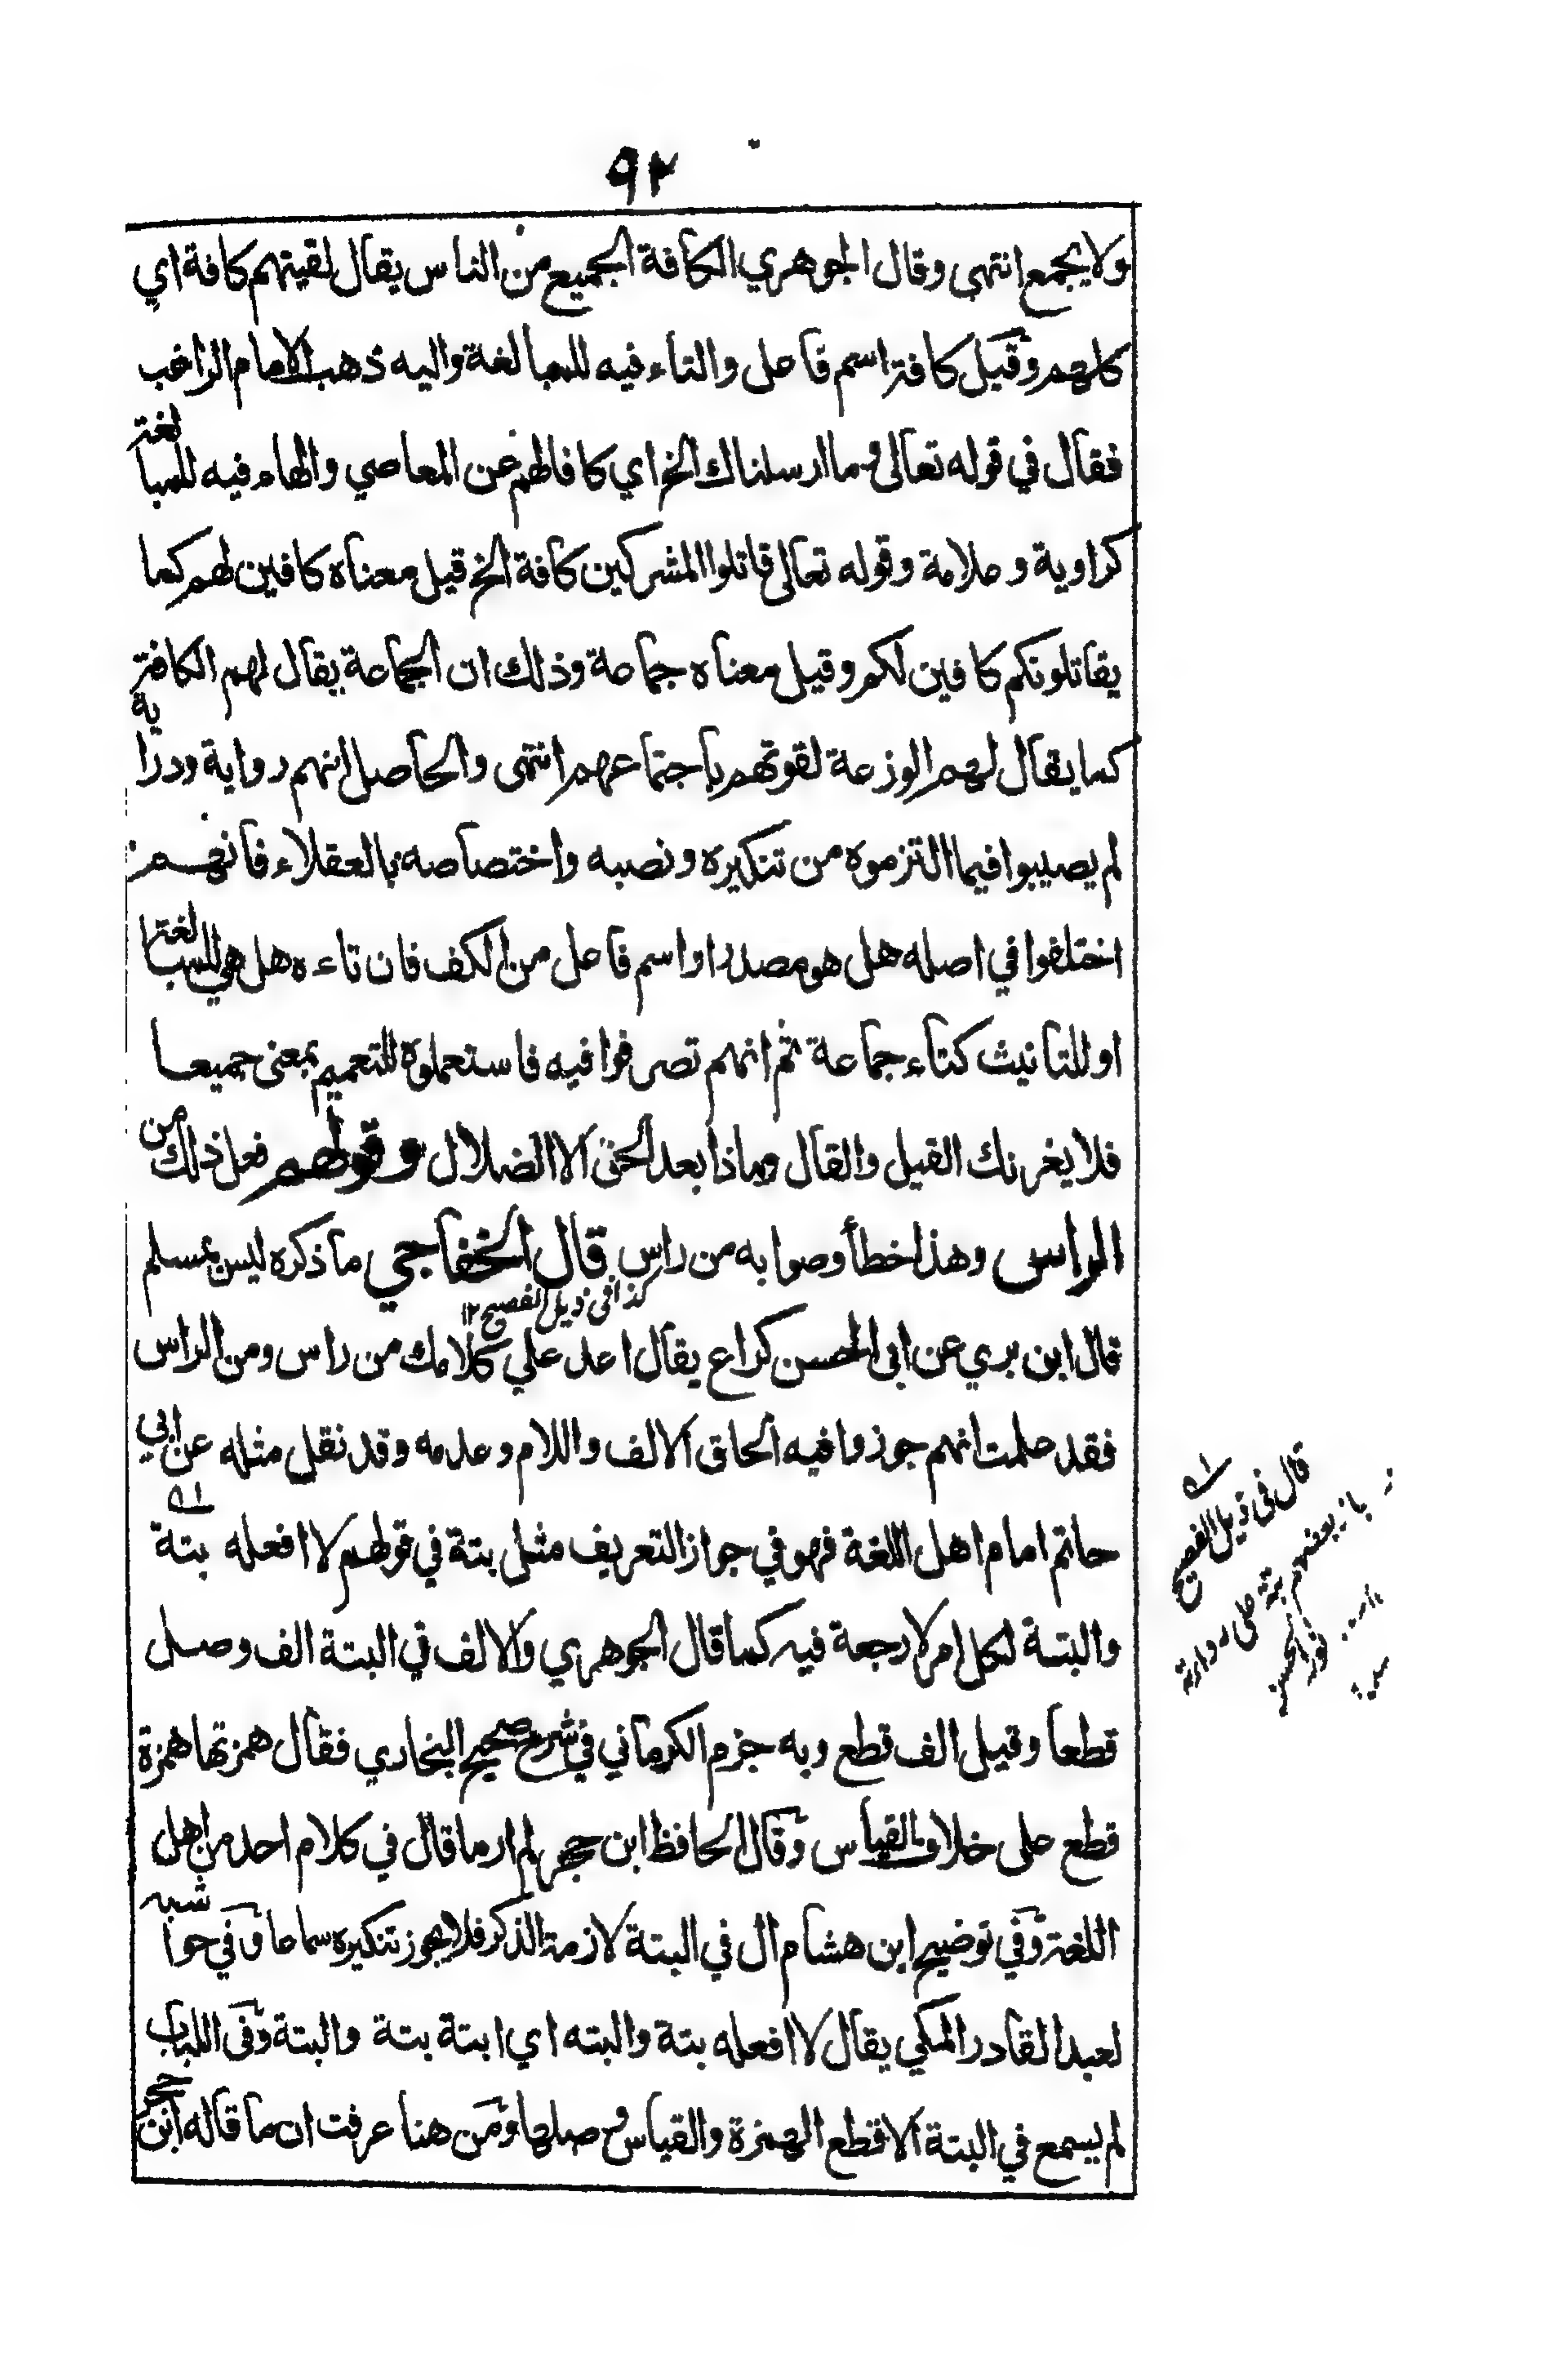 ٩٢
ولا يجمع انتهى وقال الجوهري الكافة الجميع من الناس يقال لقيتهم كافة اي
كلهم وقيل كافة اسم فاعل والتاء فيه للمبالغة واليه ذهب الامام الراغب
فقال في قوله تعالى وما ارسلناك الخ اي كافا لهم عن المعاصي والهاء فيه للمبالغة
كراوية وعلامة وقوله تعالى قاتلوا المشركين كافة الخ قيل معناه كافين لهم كما
يقاتلونكم كافين لكم وقيل معناه جماعة وذلك ان الجماعة يقال لهم الكافة
كما يقال لهم الوزعة لقوتهم باجتماعهم انتهى والحاصل انهم رواية ودراية
لم يصيبوا فيما التزموه من تنكيره ونصبه واختصاصه بالعقلاء فانهم
اختلفوا في اصله هل هو مصدر او اسم فاعل من الكف فان تاءه هل هي للمبالغة
او للتانيث كتاء جماعة ثم انهم تصرفوا فيه فاستعملوه للتعميم بمعنى جميعا
فلا يغرنك القيل والقال وماذا بعد الحق الا الضلال وقولهم فعل ذلك من
الراس وهذا خطأ وصوابه من راس قال الخفاجي ما ذكره ليس بمسلم
كذا في ذيل الفصيح ١٢
قال ابن بري عن ابي الحسن كراع يقال اعد علي كلامك من راس ومن الراس
فقد علمت انهم جوزوا فيه الحاق الالف واللام وعدمه وقد نقل مثله عن ابي
حاتم امام اهل اللغة فهو في جواز التعريف مثل بتة في قولهم لا افعله بتة
والبتة لكل امر لا رجعة فيه كما قال الجوهري والالف في البتة الف وصل
قطعا وقيل الف قطع وبه جزم الكرماني في شرح صحيح البخاري فقال همزتها همزة
قطع على خلاف القياس وقال الحافظ ابن حجر لم ار ما قال في كلام احد من اهل
اللغة وفي توضيح ابن هشام ال في البتة لازمة الذكر فلا يجوز تنكيره سماعا وفي حواشيه
لعبد القادر المكي يقال لا افعله بتة والبته اي ابتة بتة والبتة وفي اللباب
لم يسمع في البتة الا قطع الهمزة والقياس وصلها ومن هنا عرفت ان ما قاله ابن حجر
قال في ذيل الفصيح
بعضهم بتة على
نور الحسن